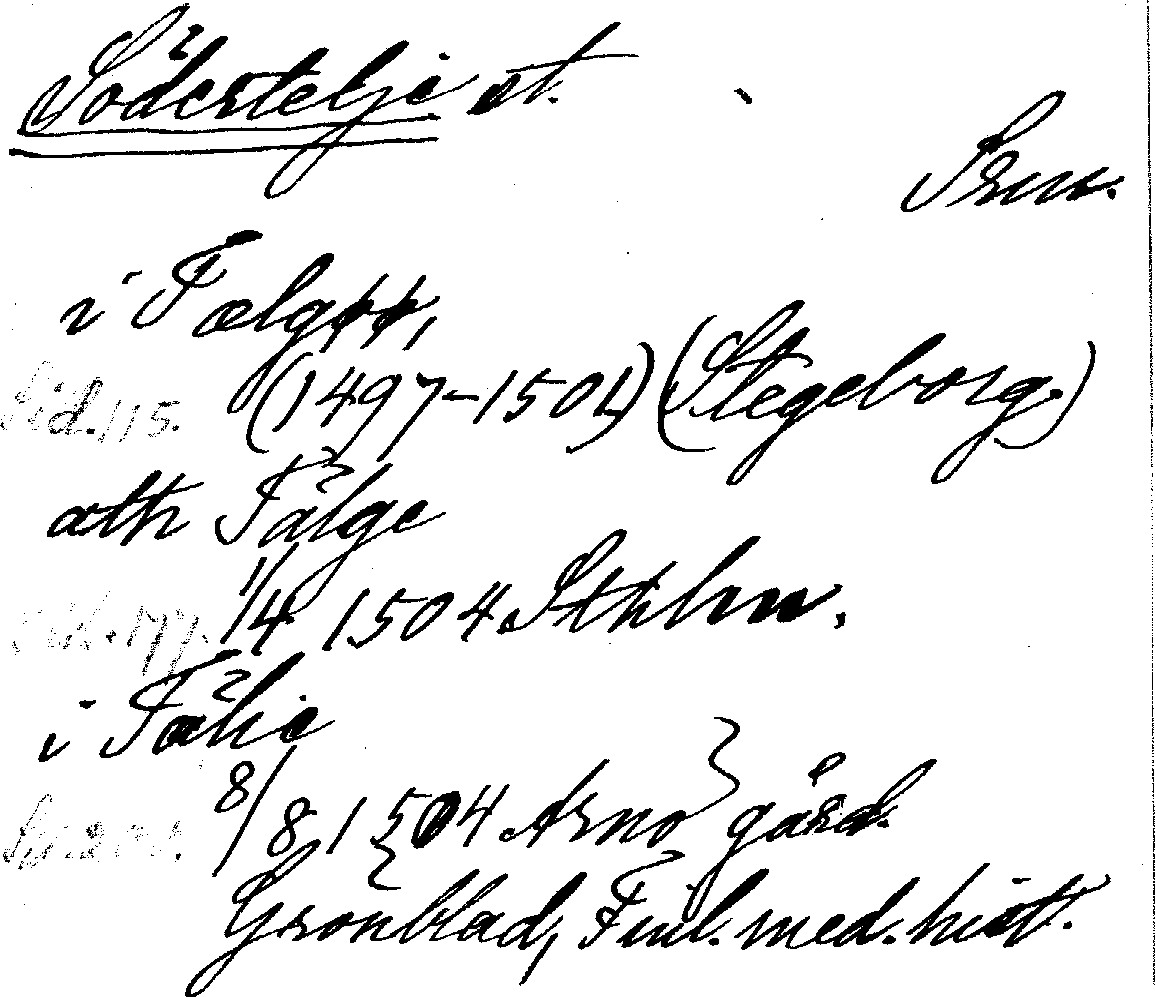 Södertelje st.
Srm.
i Tælgpp,
Sid. 115. (1497-1501) (Stegeborg.)
ath Tälge
Sid. 177. 1/4 1504 Sthlm.
i Tälie
8/8 1504 Arnö gård.
Grönblad, Finl. med. hist.